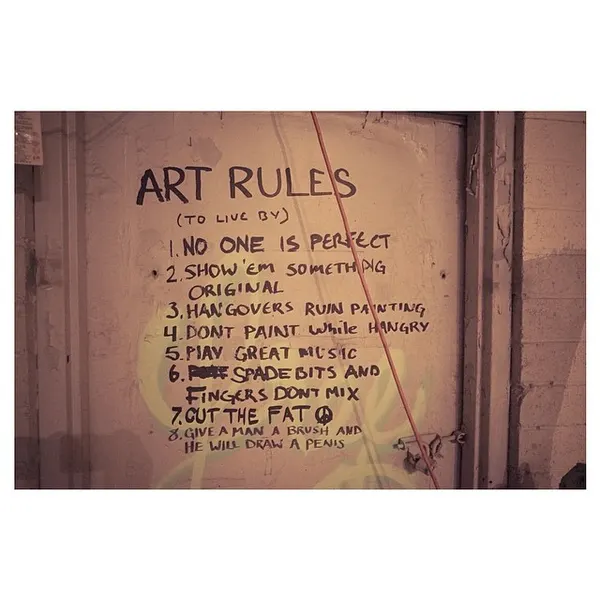 ART RULES
(TO LIVE BY)
1. NO ONE IS PERFECT
2. SHOW 'EM SOMETHING
ORIGINAL
3. HANGOVERS RUIN PAINTING
4. DONT PAINT while HANGRY
5. PLAY GREAT MUSIC
6. SPADE BITS AND
FINGERS DONT MIX
7. CUT THE FAT
8. GIVE A MAN A BRUSH AND
HE WILL DRAW A PENIS